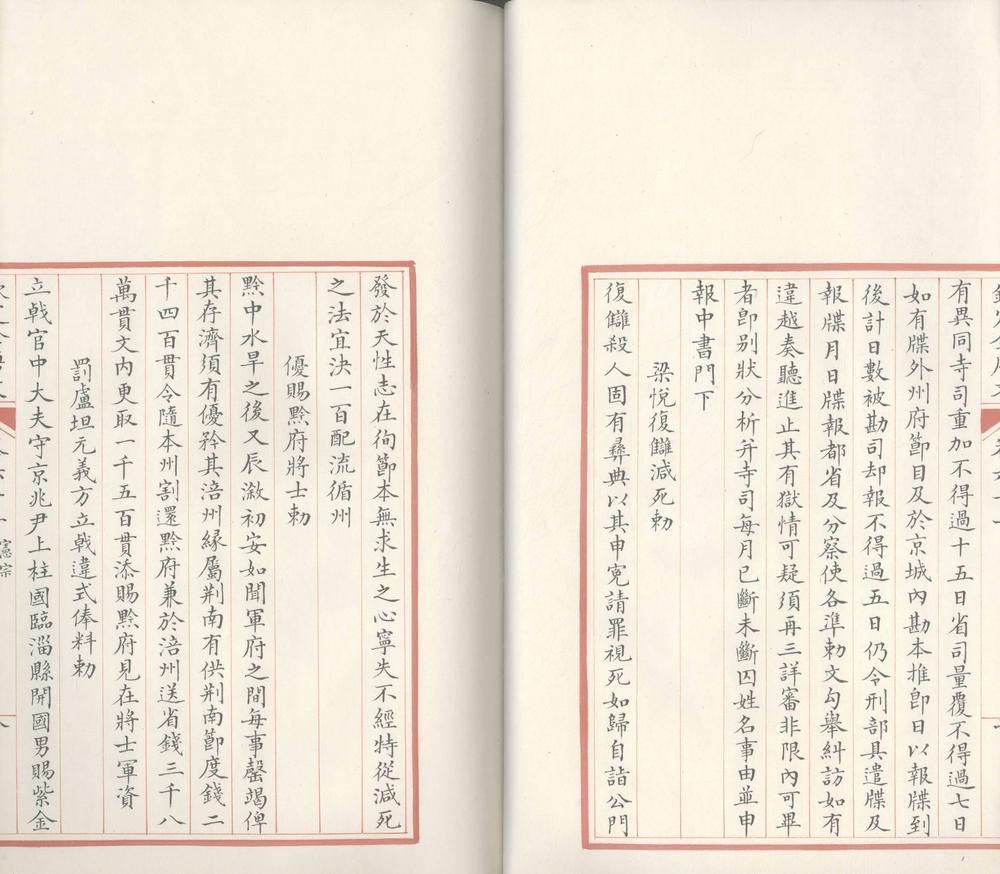 有異同寺司重加不得過十五日省司量覆不得過七日
如有牒外州府節目及於京城內勘本推即日以報牒到
後計日數被勘司却報不得過五日仍令刑部具遣牒及
報牒月日牒報都省及分察使各準勅文勾舉糾訪如有
違越奏聽進止其有獄情可疑須再三詳審非限內可畢
者即別狀分析并寺司每月已斷未斷囚姓名事由並申
報中書門下
梁悅復讎減死勅
復讎殺人固有彝典以其申寃請罪視死如歸自詣公門
發於天性志在徇節本無求生之心寧失不經特從減死
之法宜決一百配流循州
優賜黔府將士勅
黔中水旱之後又辰漵初安如聞軍府之間每事罄竭俾
其存濟須有優矜其涪州緣屬荆南有供荆南節度錢二
千四百貫令隨本州割還黔府兼於涪州送省錢三千八
萬貫文內更取一千五百貫添賜黔府見在將士軍資
罰盧坦元義方立戟違式俸料勅
立戟官中大夫守京兆尹上柱國臨淄縣開國男賜紫金
憲宗